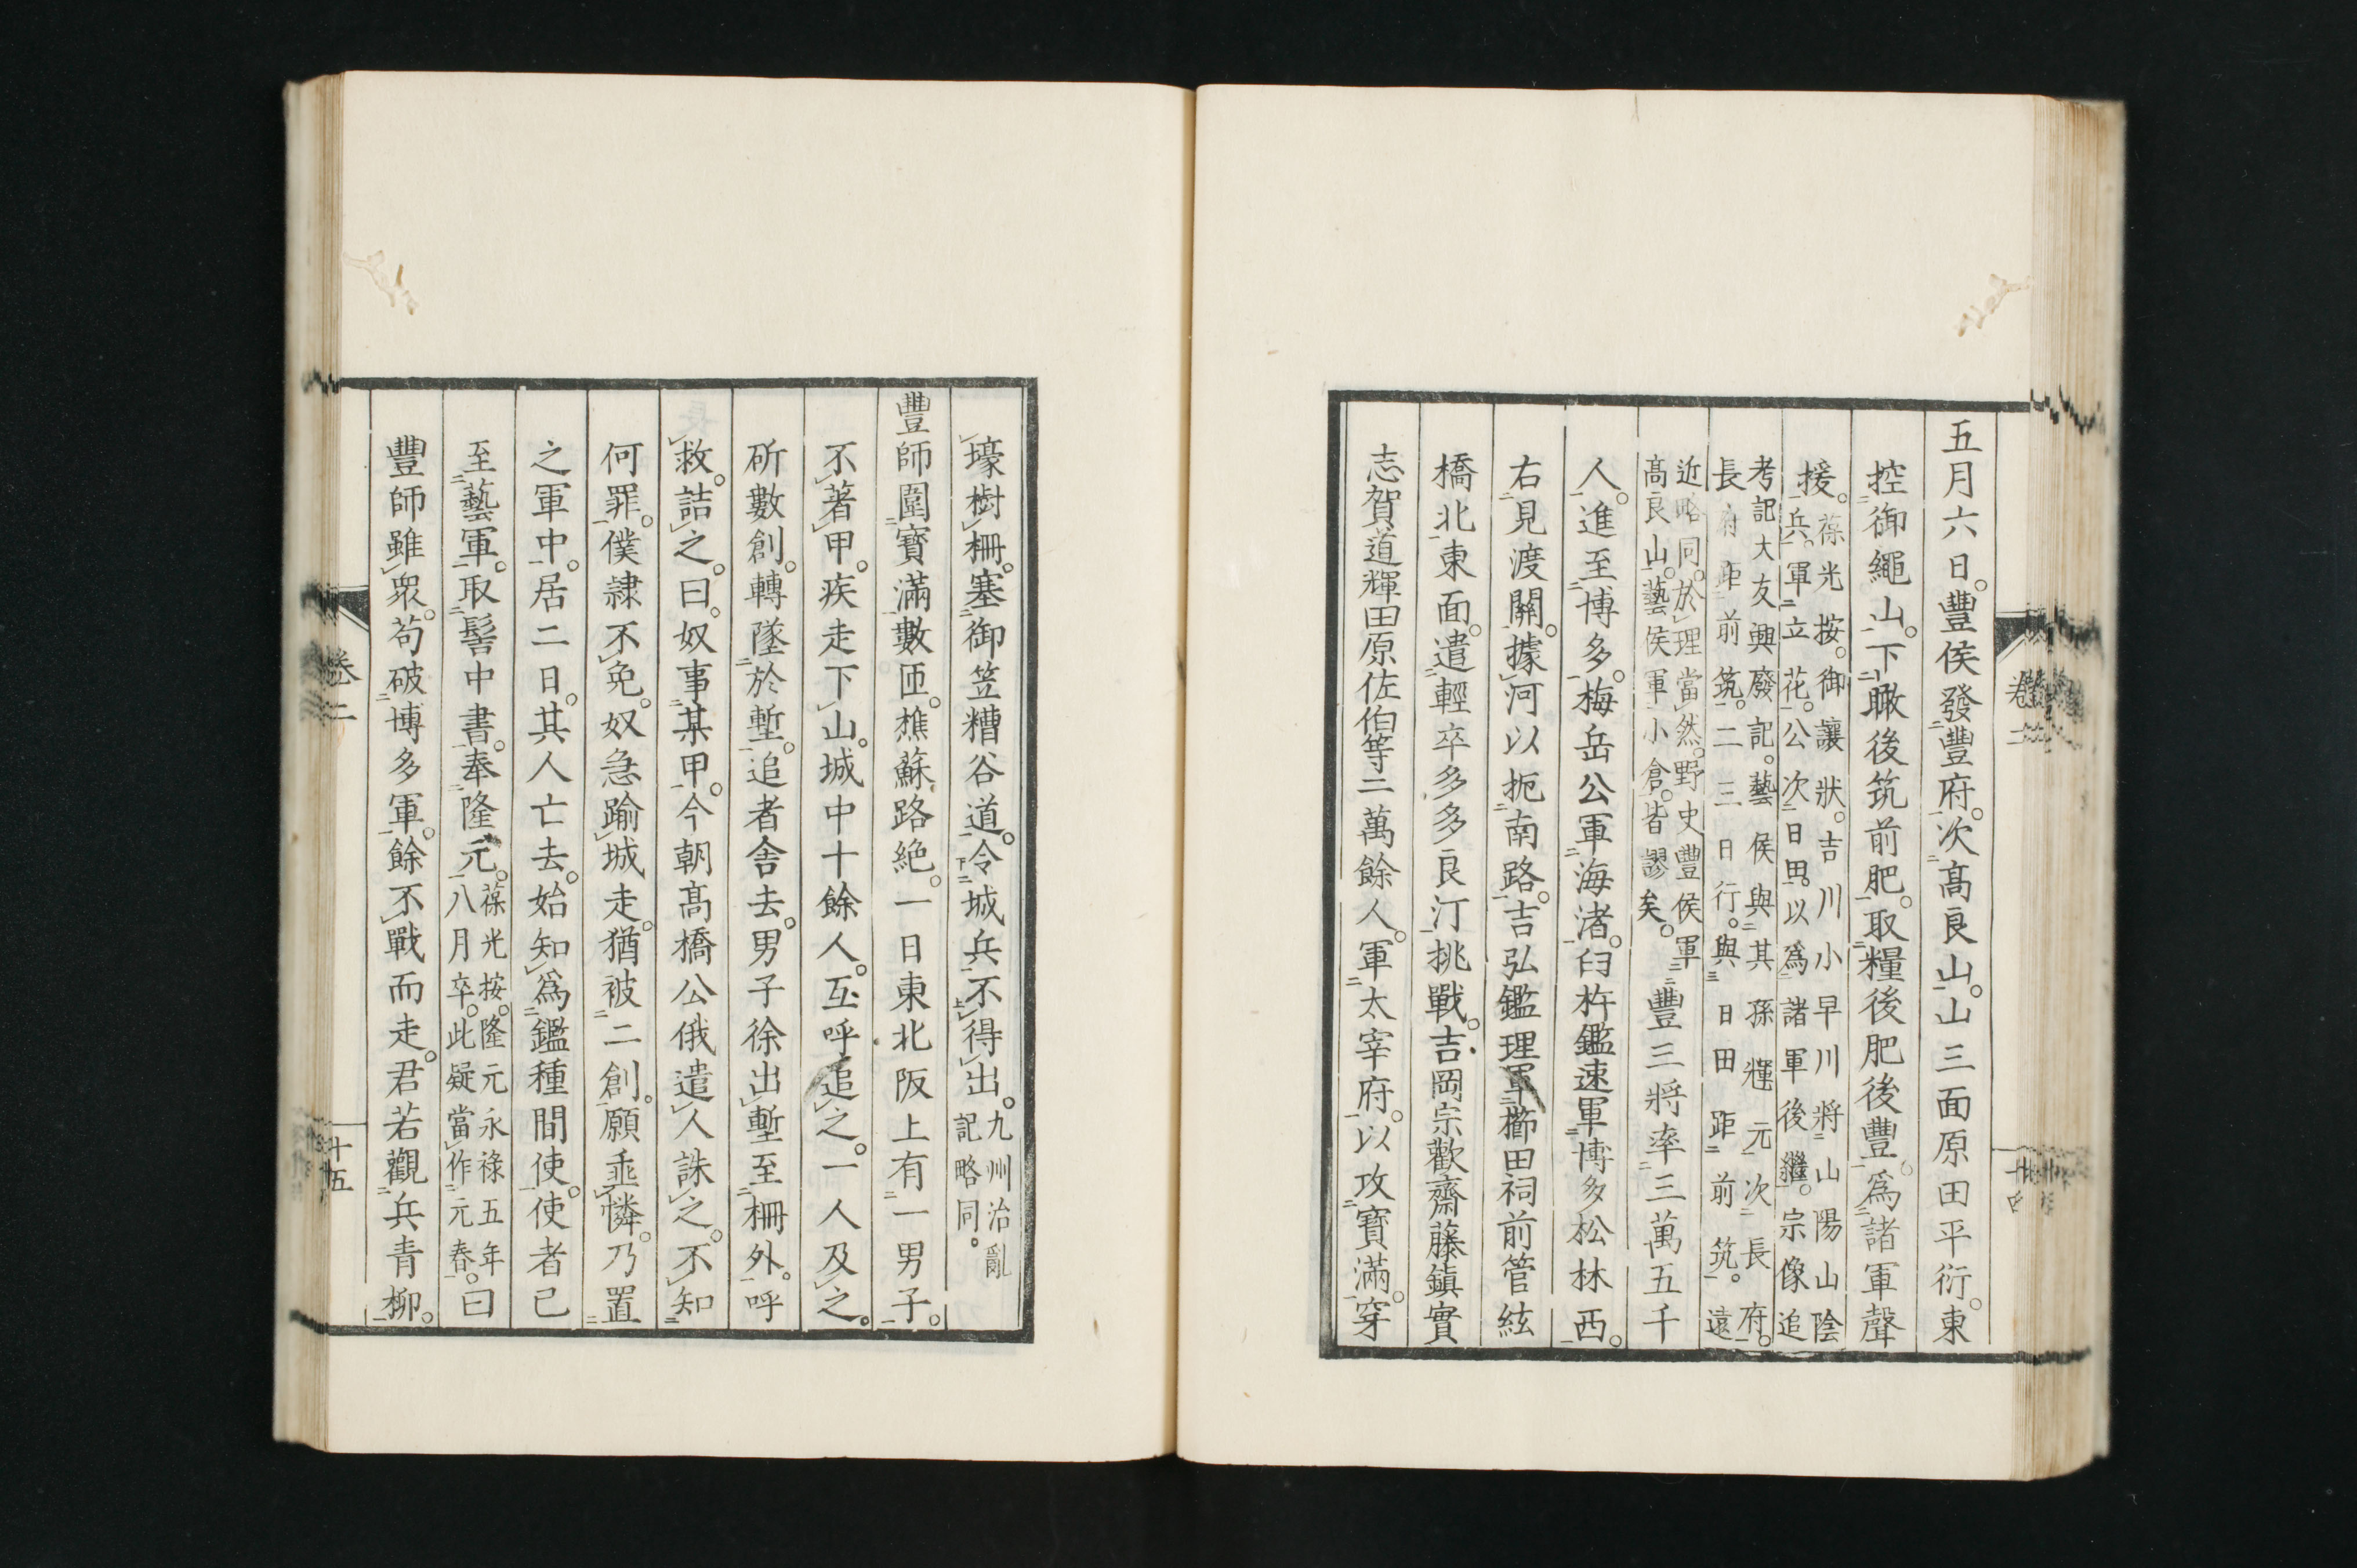 五月六日。豐侯發豐府。次髙良山。山三面原田平衍。東
控御繩山。下瞰後筑前肥。取糧後肥後豐。爲諸軍聲
援。葆光按。御讓狀。吉川小早川將山陽山陰
兵。軍立花。公次日田。以爲諸軍後繼。宗像追
考記大友興廢記。藝侯與其孫輝元次長府。
長府距前筑。二三日行。與日田距前筑。遠
近略同。於理當然。野史豐侯軍
髙良山。藝侯軍小倉。皆謬矣。豐三將率三萬五千
人。進至博多。梅岳公軍海渚。臼杵鑑速軍博多松林西。
右見渡關。據河以扼南路。吉弘鑑理軍櫛田祠前管絃
橋北東面。遣輕卒多多良汀挑戰。吉岡宗歡齋藤鎮實
志賀道輝田原佐伯等二萬餘人。軍太宰府。以攻寶滿。穿
壕樹柵。塞御笠糟谷道。令城兵不得出。九州治亂
記略同。
豐師圍寶滿數匝。樵蘇路絶。一日東北阪上有一男子。
不著甲。疾走下山。城中十餘人。互呼追之。一人及之。
斫數創。轉墜於塹。追者舍去。男子徐出塹至柵外。呼
救。詰之。曰。奴事某甲。今朝髙橋公俄遣人誅之。不知
何罪。僕隷不免。奴急踰城走。猶被二創。願垂憐。乃置
之軍中。居二日。其人亡去。始知爲鑑種間使。使者已
至藝軍。取髻中書。奉隆元。葆光按。隆元永祿五年
八月卒。此疑當作元春。曰
豐師雖衆。苟破博多軍。餘不戰而走。君若觀兵青柳。
卷二
十五